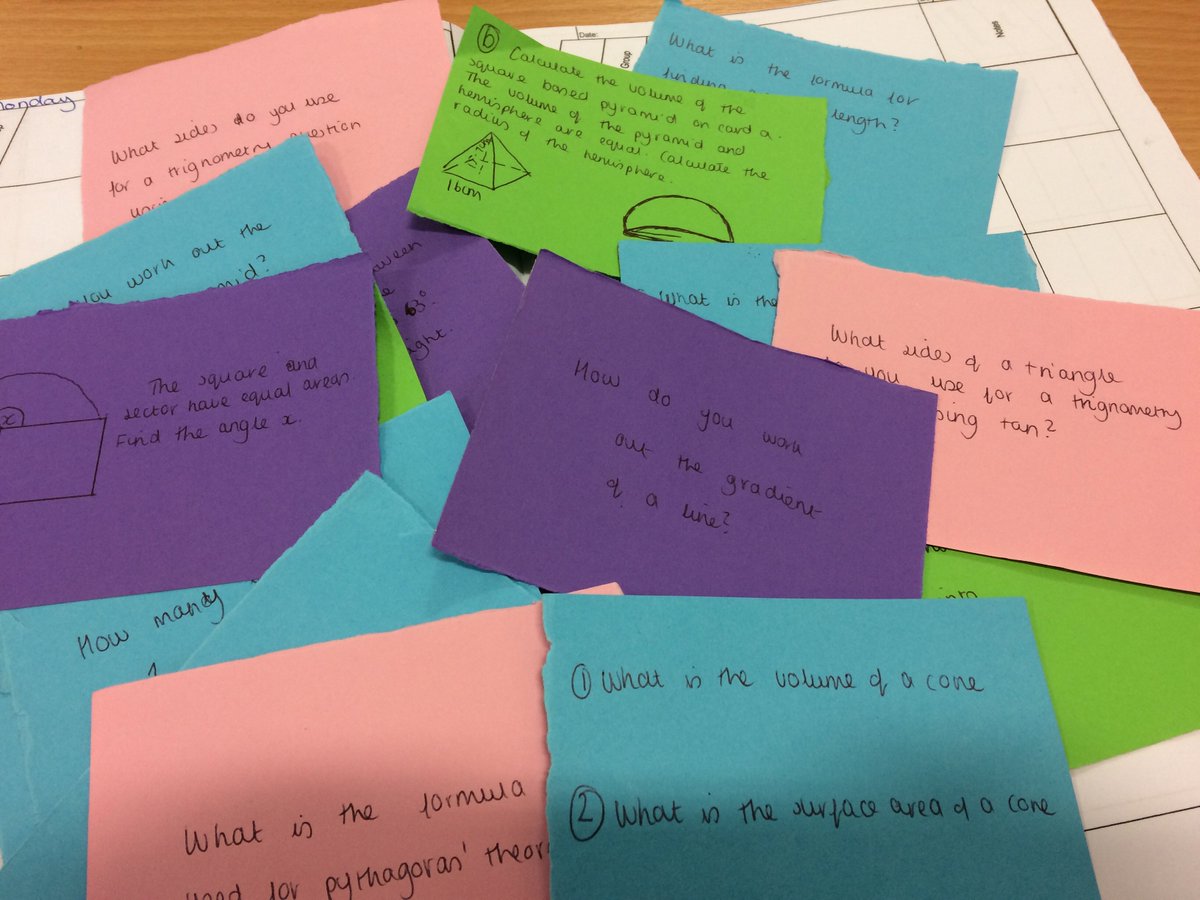 Monday
Date:
Group
Notes
What sides do you use
for a trignometry question
6 Calculate the volume of the
square based pyramid on card a.
The volume of the pyramid and
hemisphere are equal. Calculate the
radius of the hemisphere.
16cm
What is the formula for
finding
length?
you work out the
63°
What is the
What sides of a triangle
you use for a trignometry
tan?
The square and
sector have equal areas
Find the angle x.
x
How do you work
out the gradient
of a line?
into
How many
1 What is the volume of a cone
2 What is the surface area of a cone
What is the formula
used for pythagoras'